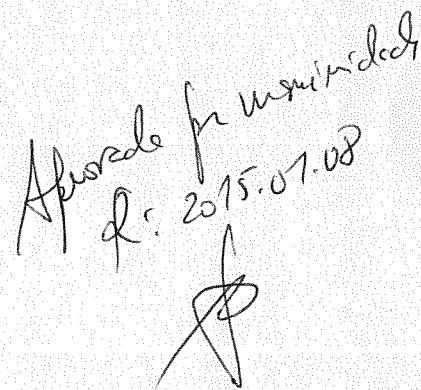 Aprovado por unanimidade
R: 2015.01.08